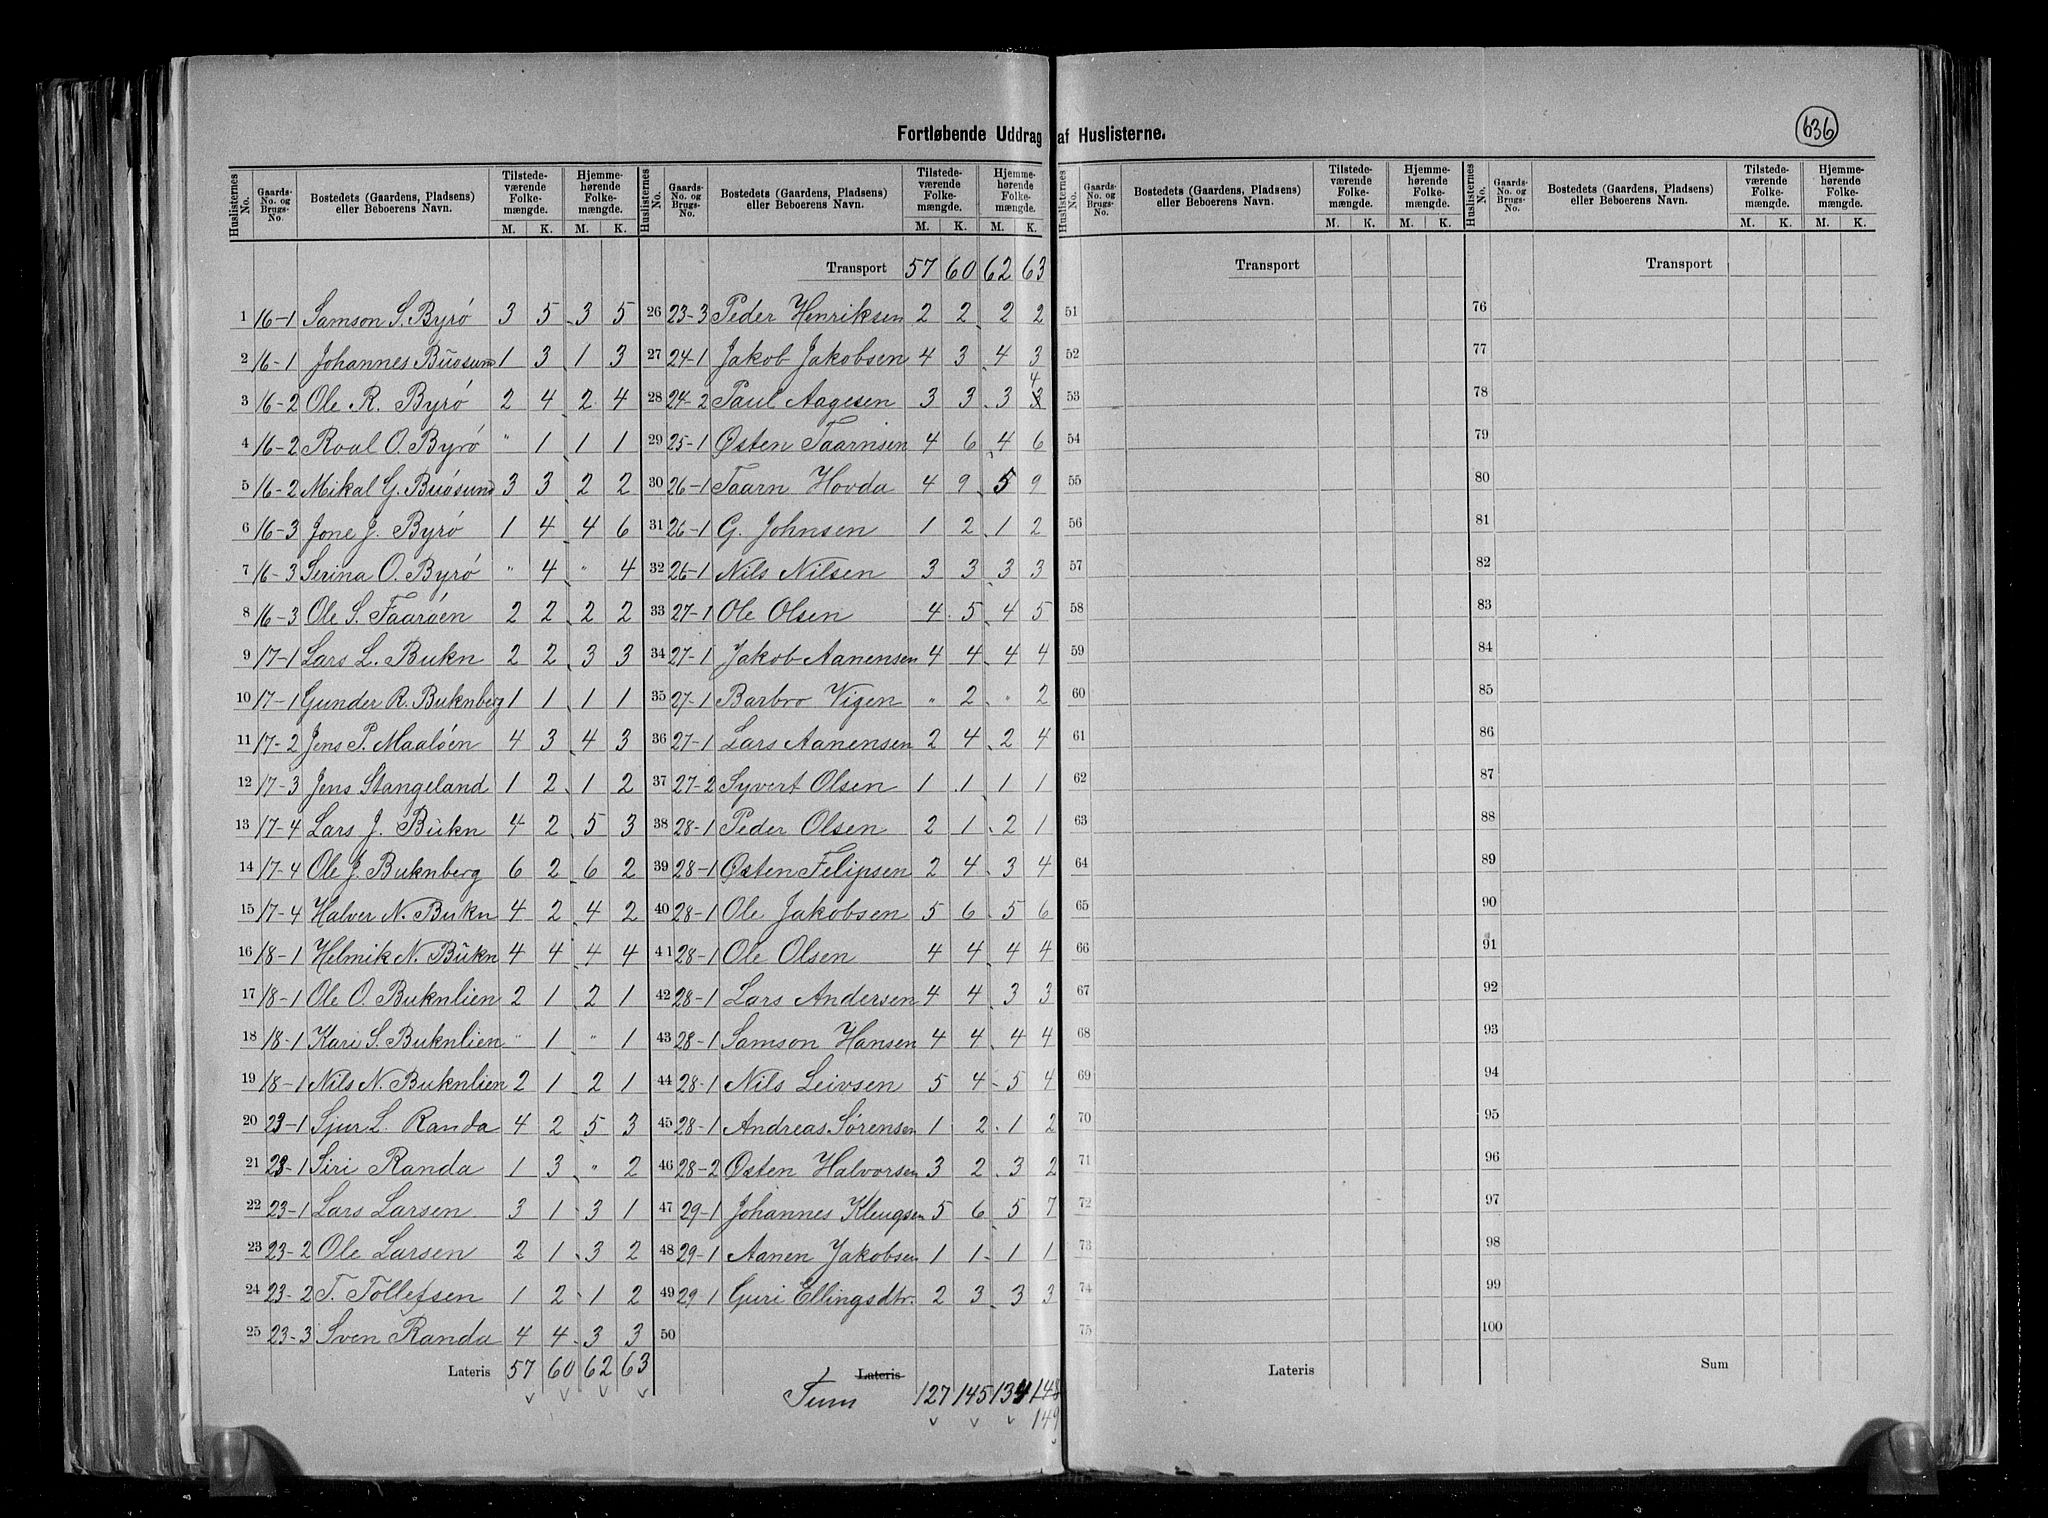 Fortløbende Uddrag af Huslisterne.
636
Huslisternes No. | Gaards-No. og Brugs-No. | Bostedets (Gaardens, Pladsens) eller Beboerens Navn. | Tilstedeværende Folkemængde. M. K. | Hjemmehørende Folkemængde. M. K.
1 16-1 Samson S. Byrø 3 5 3 5
2 16-1 Johannes Buøsund 1 3 1 3
3 16-2 Ole R. Byrø 2 4 2 4
4 16-2 Roal O. Byrø " 1 1 1
5 16-2 Mikal G. Buøsund 3 3 2 2
6 16-3 Jone J. Byrø 1 4 4 6
7 16-3 Serina O. Byrø " 4 " 4
8 16-3 Ole S. Faarøen 2 2 2 2
9 17-1 Lars L. Bukn 2 2 3 3
10 17-1 Gunder R. Buknberg 1 1 1 1
11 17-2 Jens P. Maaløen 4 3 4 3
12 17-3 Jens Stangeland 1 2 1 2
13 17-4 Lars J. Bukn 4 2 5 3
14 17-4 Ole J. Buknberg 6 2 6 2
15 17-4 Halver N. Bukn 4 2 4 2
16 18-1 Helmik N. Bukn 4 4 4 4
17 18-1 Ole O. Buknlien 2 1 2 1
18 18-1 Kari S. Buknlien " 1 " 1
19 18-1 Nils N. Buknlien 2 1 2 1
20 23-1 Sjur L. Randa 4 2 5 3
21 23-1 Siri Randa 1 3 " 2
22 23-1 Lars Larsen 3 1 3 1
23 23-2 Ole Larsen 2 1 3 2
24 23-2 T. Tollefsen 1 2 1 2
25 23-3 Sven Randa 4 4 3 3
Lateris 57 60 62 63
Huslisternes No. | Gaards-No. og Brugs-No. | Bostedets (Gaardens, Pladsens) eller Beboerens Navn. | Tilstedeværende Folkemængde. M. K. | Hjemmehørende Folkemængde. M. K.
Transport 57 60 62 63
26 23-3 Peder Henriksen 2 2 2 2
27 24-1 Jakob Jakobsen 4 3 4 3
28 24-2 Paul Aagesen 3 3 3 3 4
29 25-1 Østen Taarnsen 4 6 4 6
30 26-1 Taarn Hovda 4 9 5 9
31 26-1 G. Johnsen 1 2 1 2
32 26-1 Nils Nilsen 3 3 3 3
33 27-1 Ole Olsen 4 5 4 5
34 27-1 Jakob Aanensen 4 4 4 4
35 27-1 Barbro Vigen " 2 " 2
36 27-1 Lars Aanensen 2 4 2 4
37 27-2 Syvert Olsen 1 1 1 1
38 28-1 Peder Olsen 2 1 2 1
39 28-1 Østen Felipsen 2 4 3 4
40 28-1 Ole Jakobsen 5 6 5 6
41 28-1 Ole Olsen 4 4 4 4
42 28-1 Lars Andersen 4 4 3 3
43 28-1 Samson Hansen 4 4 4 4
44 28-1 Nils Leivsen 5 4 5 4
45 28-1 Andreas Sørensen 1 2 1 2
46 28-2 Østen Halvorsen 3 2 3 2
47 29-1 Johannes Kleugsen 5 6 5 7
48 29-1 Aanen Jakobsen 1 1 1 1
49 29-1 Guri Ellingsdtr. 2 3 3 3
50
Lateris
Sum 127 145 134 148
149
Huslisternes No. | Gaards-No. og Brugs-No. | Bostedets (Gaardens, Pladsens) eller Beboerens Navn. | Tilstedeværende Folkemængde. M. K. | Hjemmehørende Folkemængde. M. K.
Transport
51
52
53
54
55
56
57
58
59
60
61
62
63
64
65
66
67
68
69
70
71
72
73
74
75
Lateris
Huslisternes No. | Gaards-No. og Brugs-No. | Bostedets (Gaardens, Pladsens) eller Beboerens Navn. | Tilstedeværende Folkemængde. M. K. | Hjemmehørende Folkemængde. M. K.
Transport
76
77
78
79
80
81
82
83
84
85
86
87
88
89
90
91
92
93
94
95
96
97
98
99
100
Sum